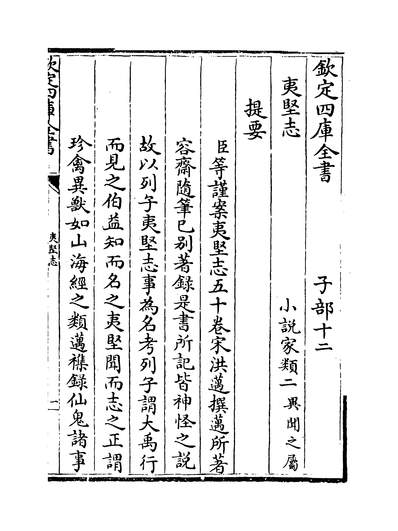 欽定四庫全書　子部十二
夷堅志　小說家類二異聞之屬
提要
臣等謹案夷堅志五十卷宋洪邁撰邁所著
容齋隨筆已别著錄是書所記皆神怪之說
故以列子夷堅志事為名考列子謂大禹行
而見之伯益知而名之夷堅聞而志之正謂
珍禽異獸如山海經之類邁襍錄仙鬼諸事
欽定四庫全書
夷堅志